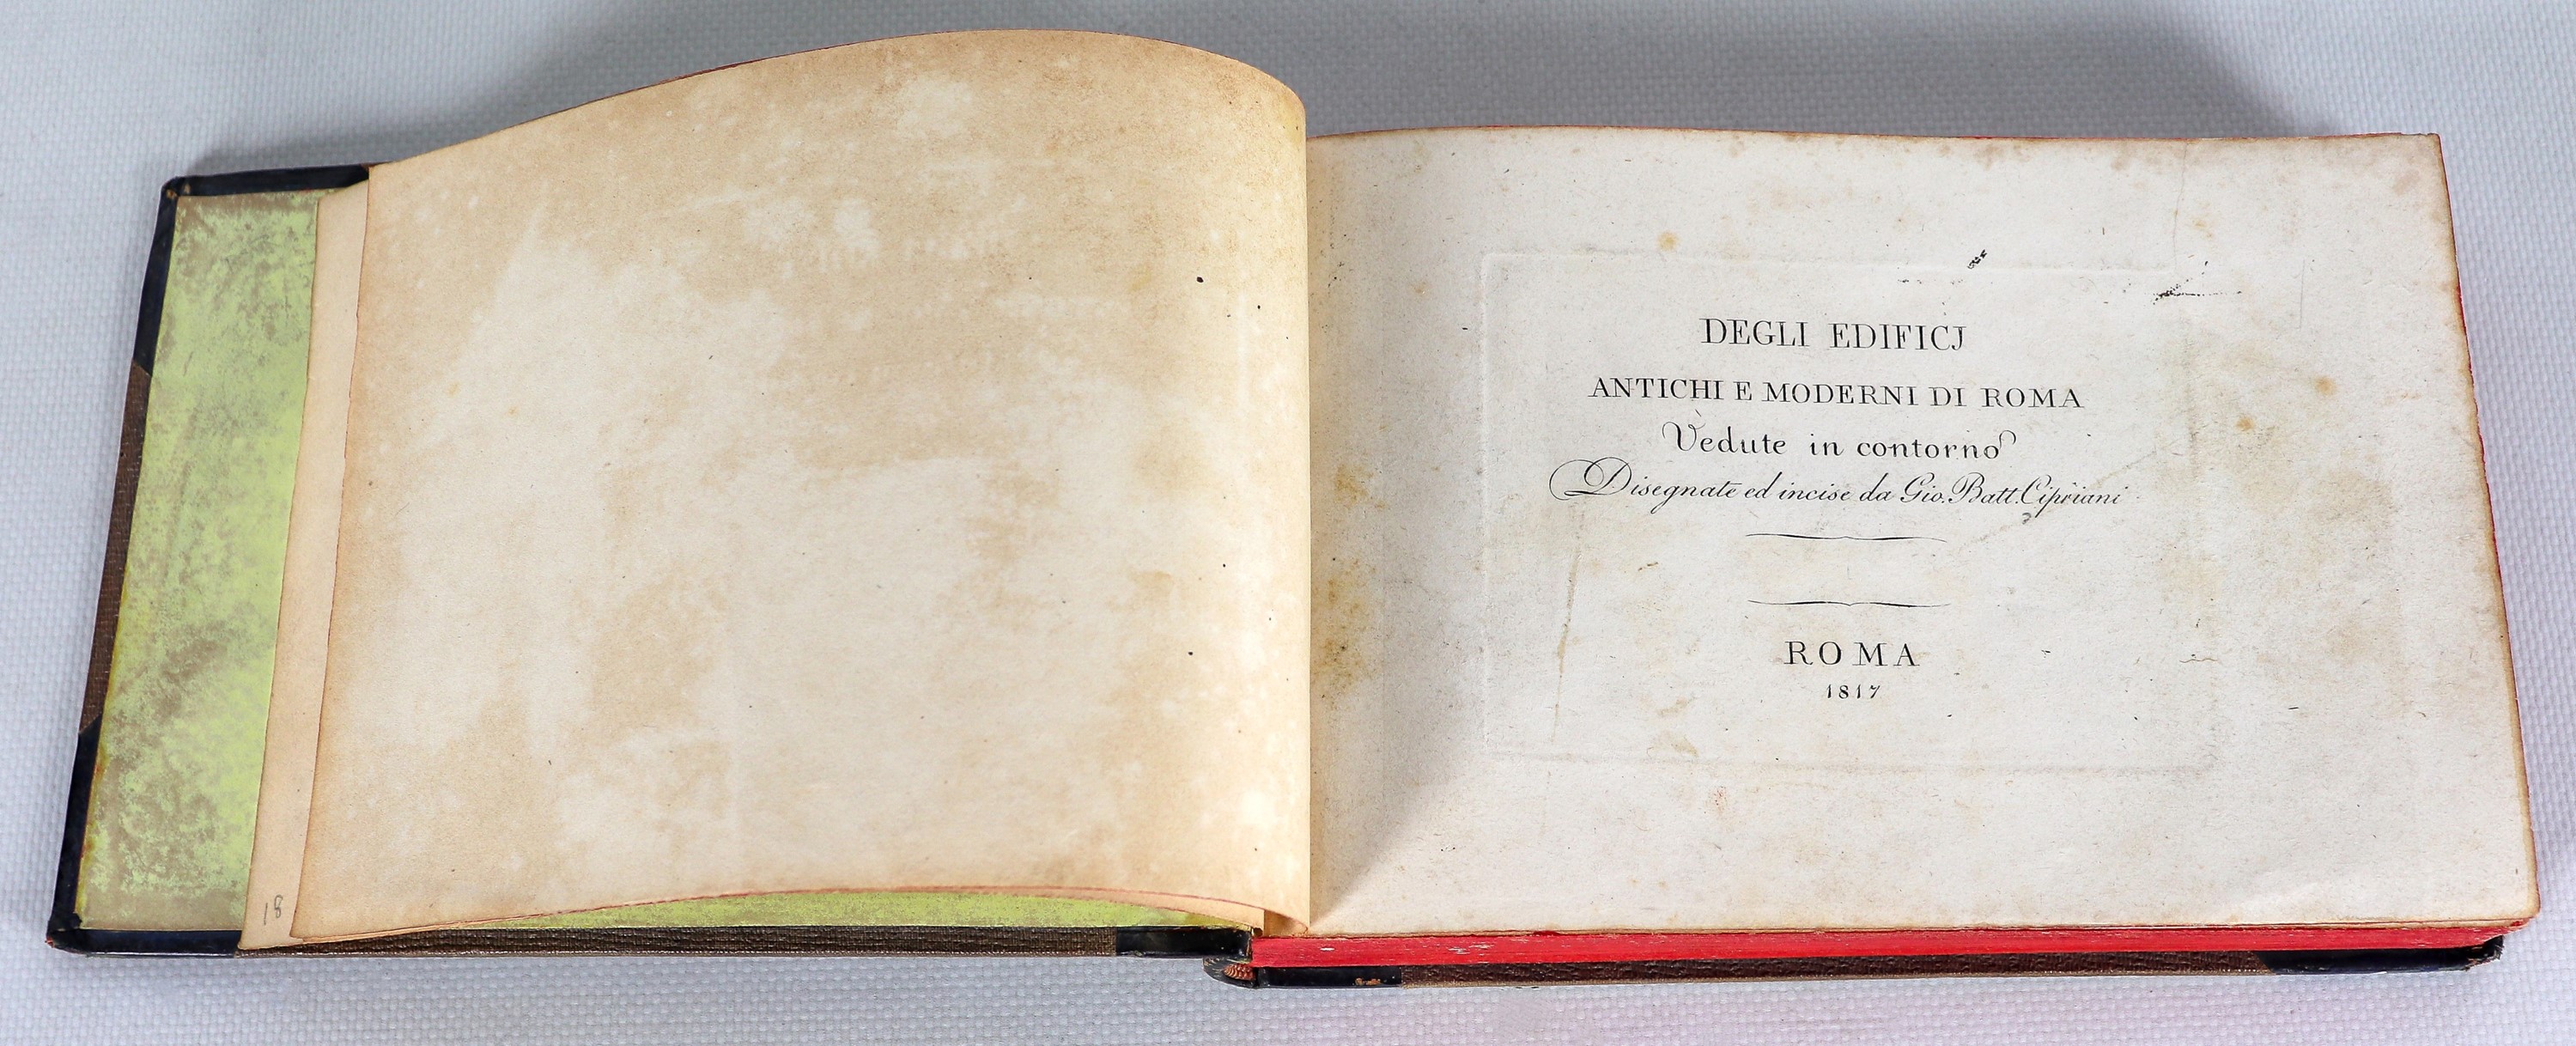 18
DEGLI EDIFICJ
ANTICHI E MODERNI DI ROMA
Vedute in contorno
Disegnate ed incise da Gio. Batt. Cipriani
ROMA
1817